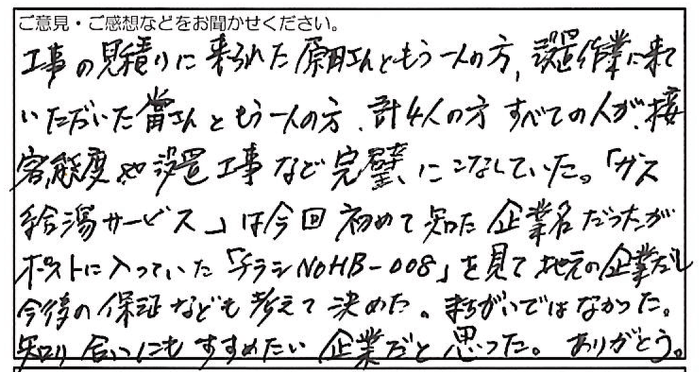 ご意見・ご感想などをお聞かせください。
工事の見積りに来られた原田さんともう一人の方,設置作業に来て
いただいた當さんともう一人の方、計4人の方すべての人が、接
客態度や設置工事など完璧にこなしていた。「ガス
給湯サービス」は今回初めて知た企業名だったが
ポストに入っていた「チラシNOHB-008」を見て地元の企業だし
今後の保証なども考えて決めた。まちがいではなかった。
知り合いにもすすめたい企業だと思った。ありがとう。